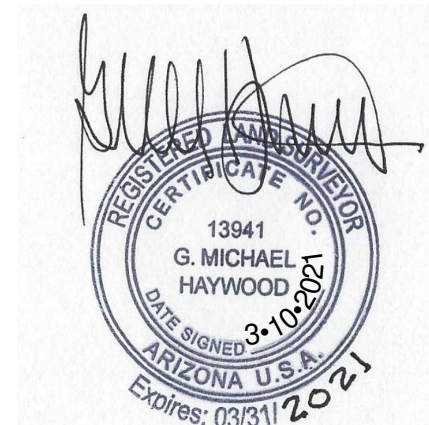 REGISTERED LAND SURVEYOR
CERTIFICATE NO.
13941
G. MICHAEL
HAYWOOD
DATE SIGNED 3•10•2021
ARIZONA U.S.A.
Expires: 03/31/2021